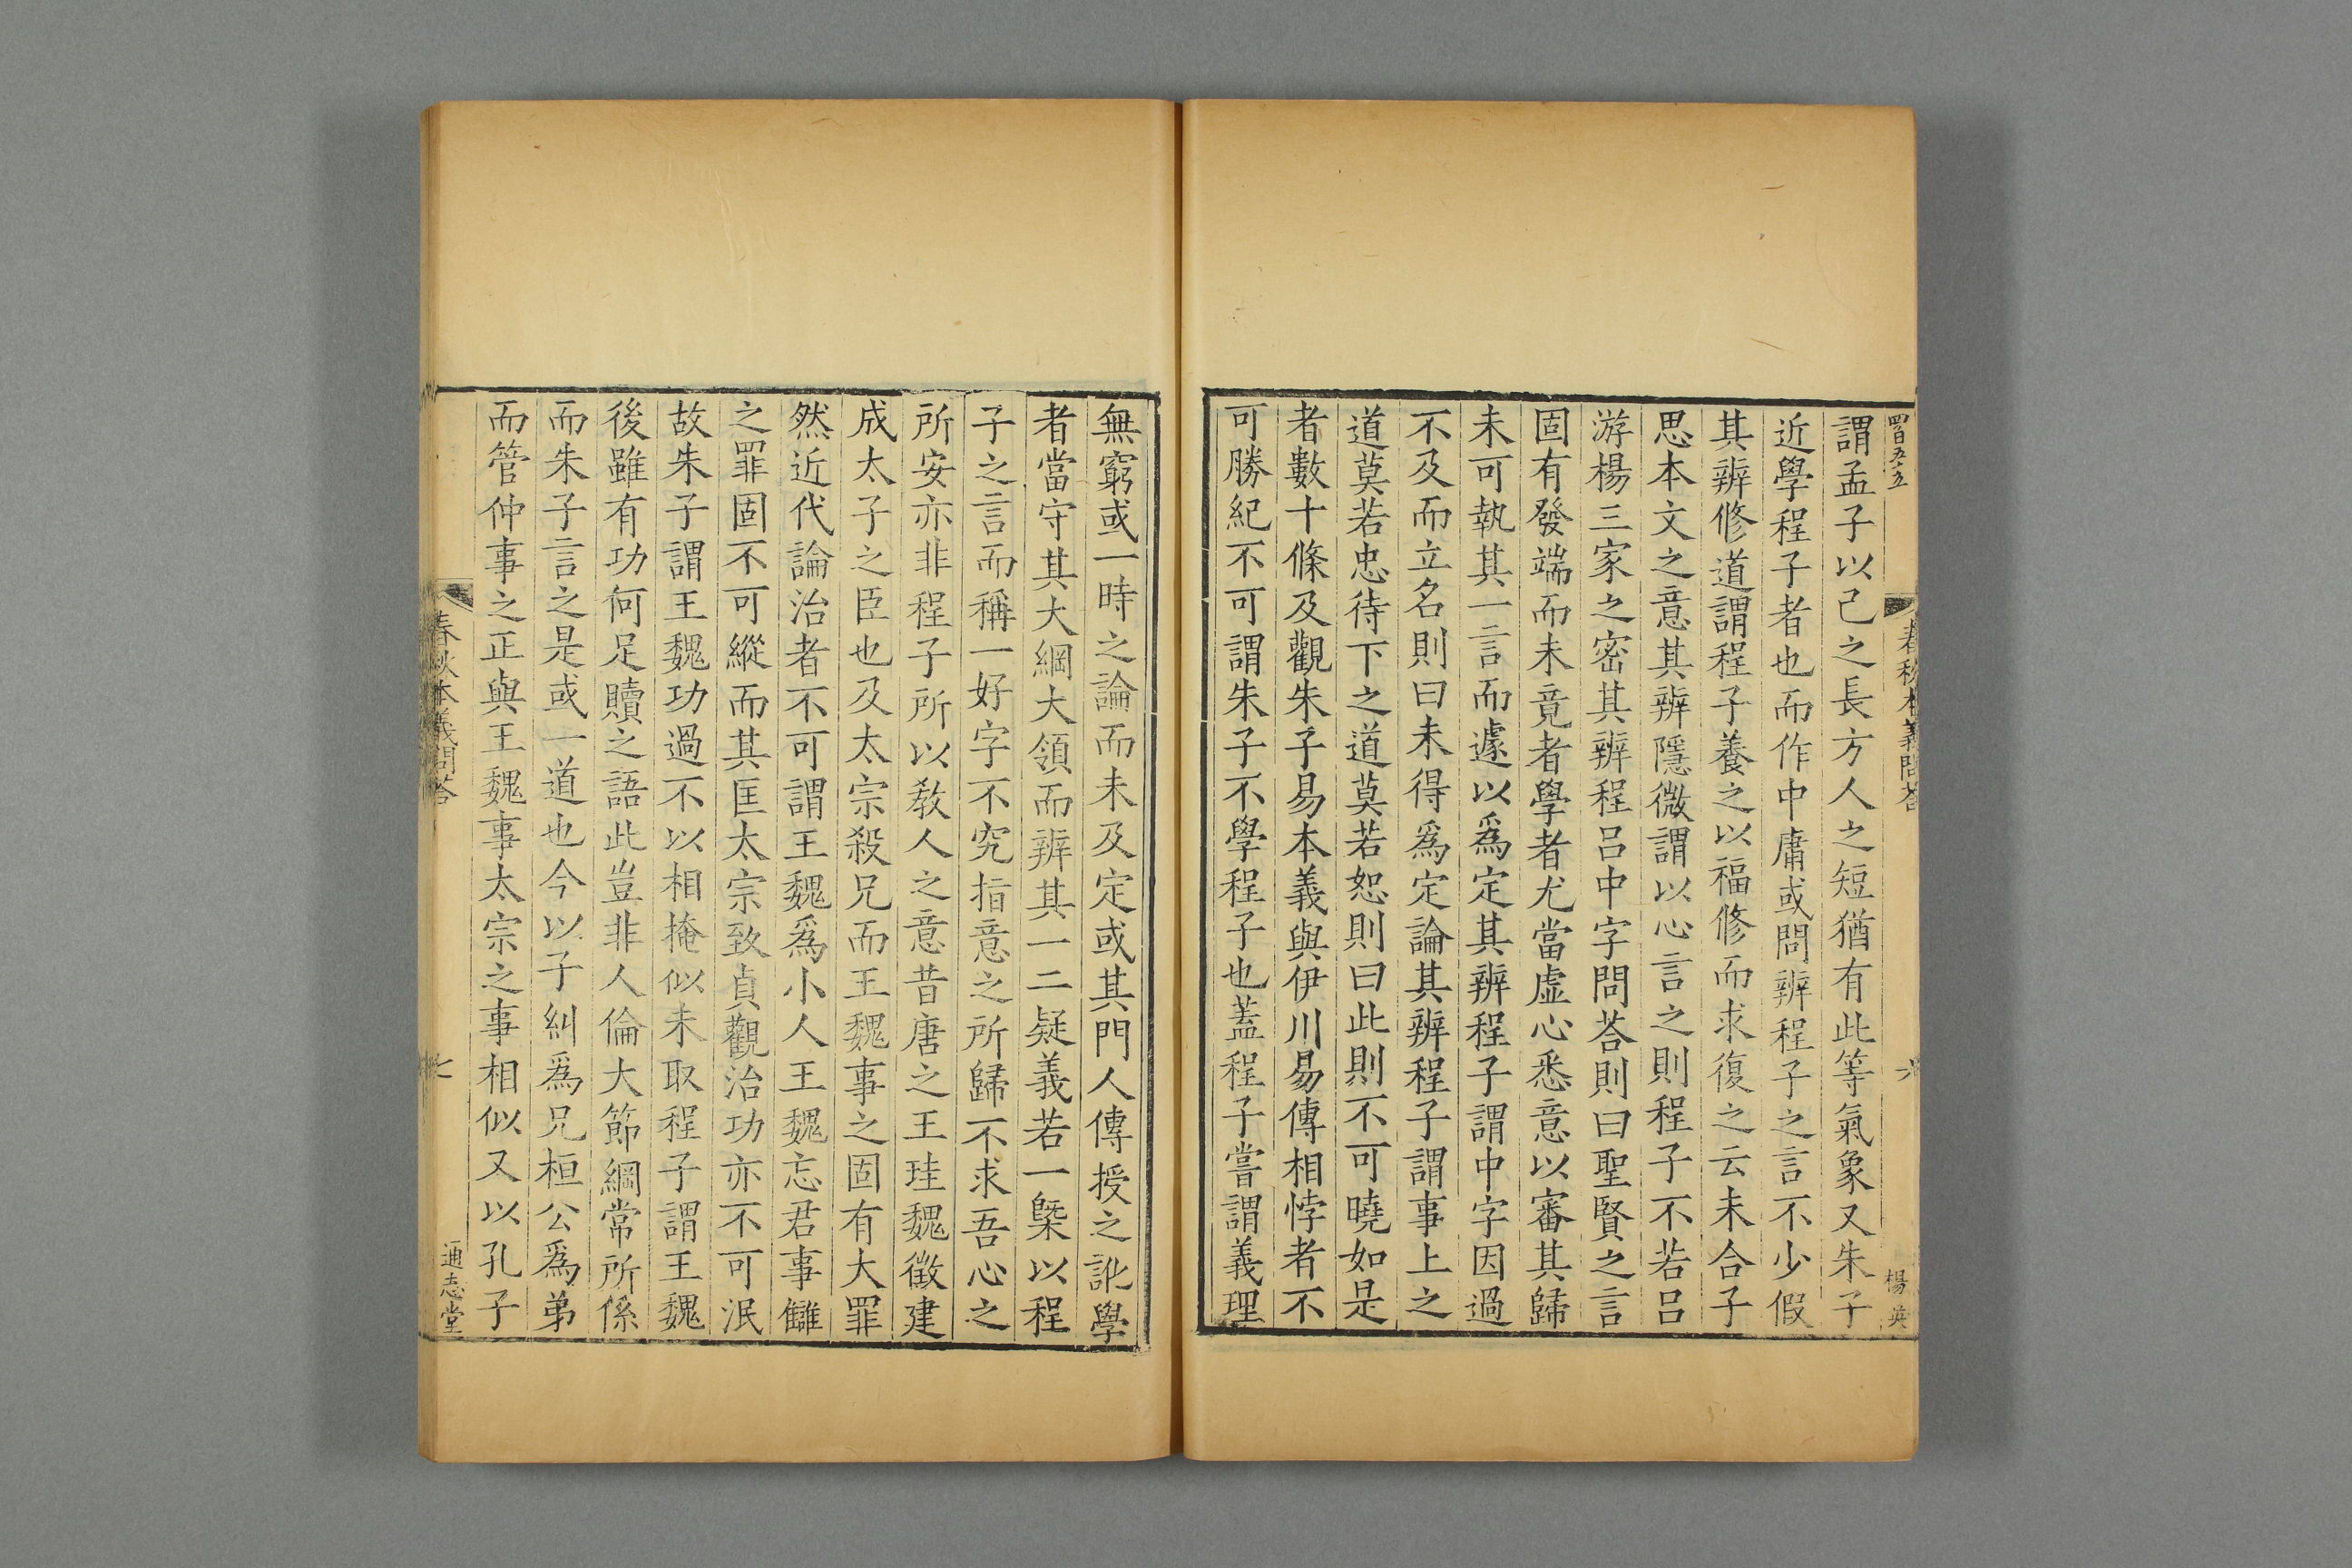 四百五十五
春秋本義問荅
六
楊英
謂孟子以己之長方人之短猶有此等氣象又朱子
近學程子者也而作中庸或問辨程子之言不少假
其辨修道謂程子養之以福修而求復之云未合子
思本文之意其辨隱微謂以心言之則程子不若呂
游楊三家之密其辨程呂中字問荅則曰聖賢之言
固有發端而未竟者學者尤當虛心悉意以審其歸
未可執其一言而遽以爲定其辨程子謂中字因過
不及而立名則曰未得爲定論其辨程子謂事上之
道莫若忠待下之道莫若恕則曰此則不可曉如是
者數十條及觀朱子易本義與伊川易傳相悖者不
可勝紀不可謂朱子不學程子也蓋程子嘗謂義理
無窮或一時之論而未及定或其門人傳授之訛學
者當守其大綱大領而辨其一二疑義若一槩以程
子之言而稱一好字不究指意之所歸不求吾心之
所安亦非程子所以敎人之意昔唐之王珪魏徵建
成太子之臣也及太宗殺兄而王魏事之固有大罪
然近代論治者不可謂王魏爲小人王魏忘君事讎
之罪固不可縱而其匡太宗致貞觀治功亦不可泯
故朱子謂王魏功過不以相掩似未取程子謂王魏
後雖有功何足贖之語此豈非人倫大節綱常所係
而朱子言之是或一道也今以子糾爲兄桓公爲弟
而管仲事之正與王魏事太宗之事相似又以孔子
春秋本義問荅
七
通志堂